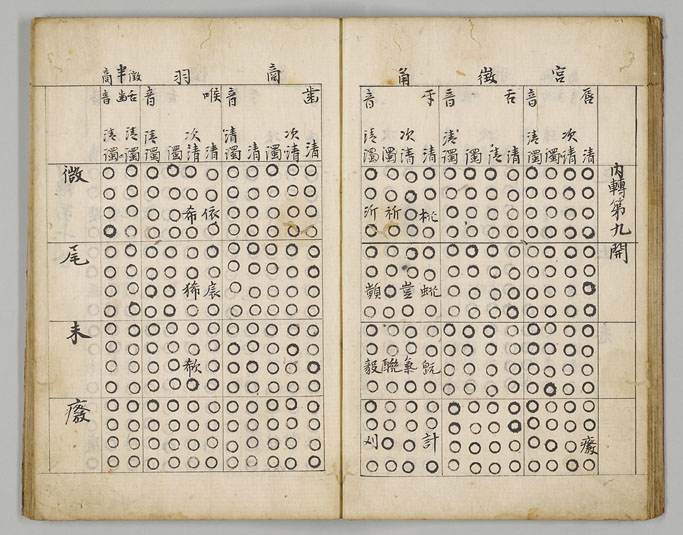 內轉第九 開
宮 徴 角
脣音 舌音 牙音
清 次清 濁 清濁
清 次清 濁 清濁
清 次清 濁 清濁
祈 沂
豈 顗
既 氣 毅
廢 計 刈
商 羽 半徵商
齒音 喉音 舌齒音
清 次清 濁 清 濁
清 次清 濁 清濁
清濁 清濁
微 依 希
尾 扆 狶
未 欷
廢